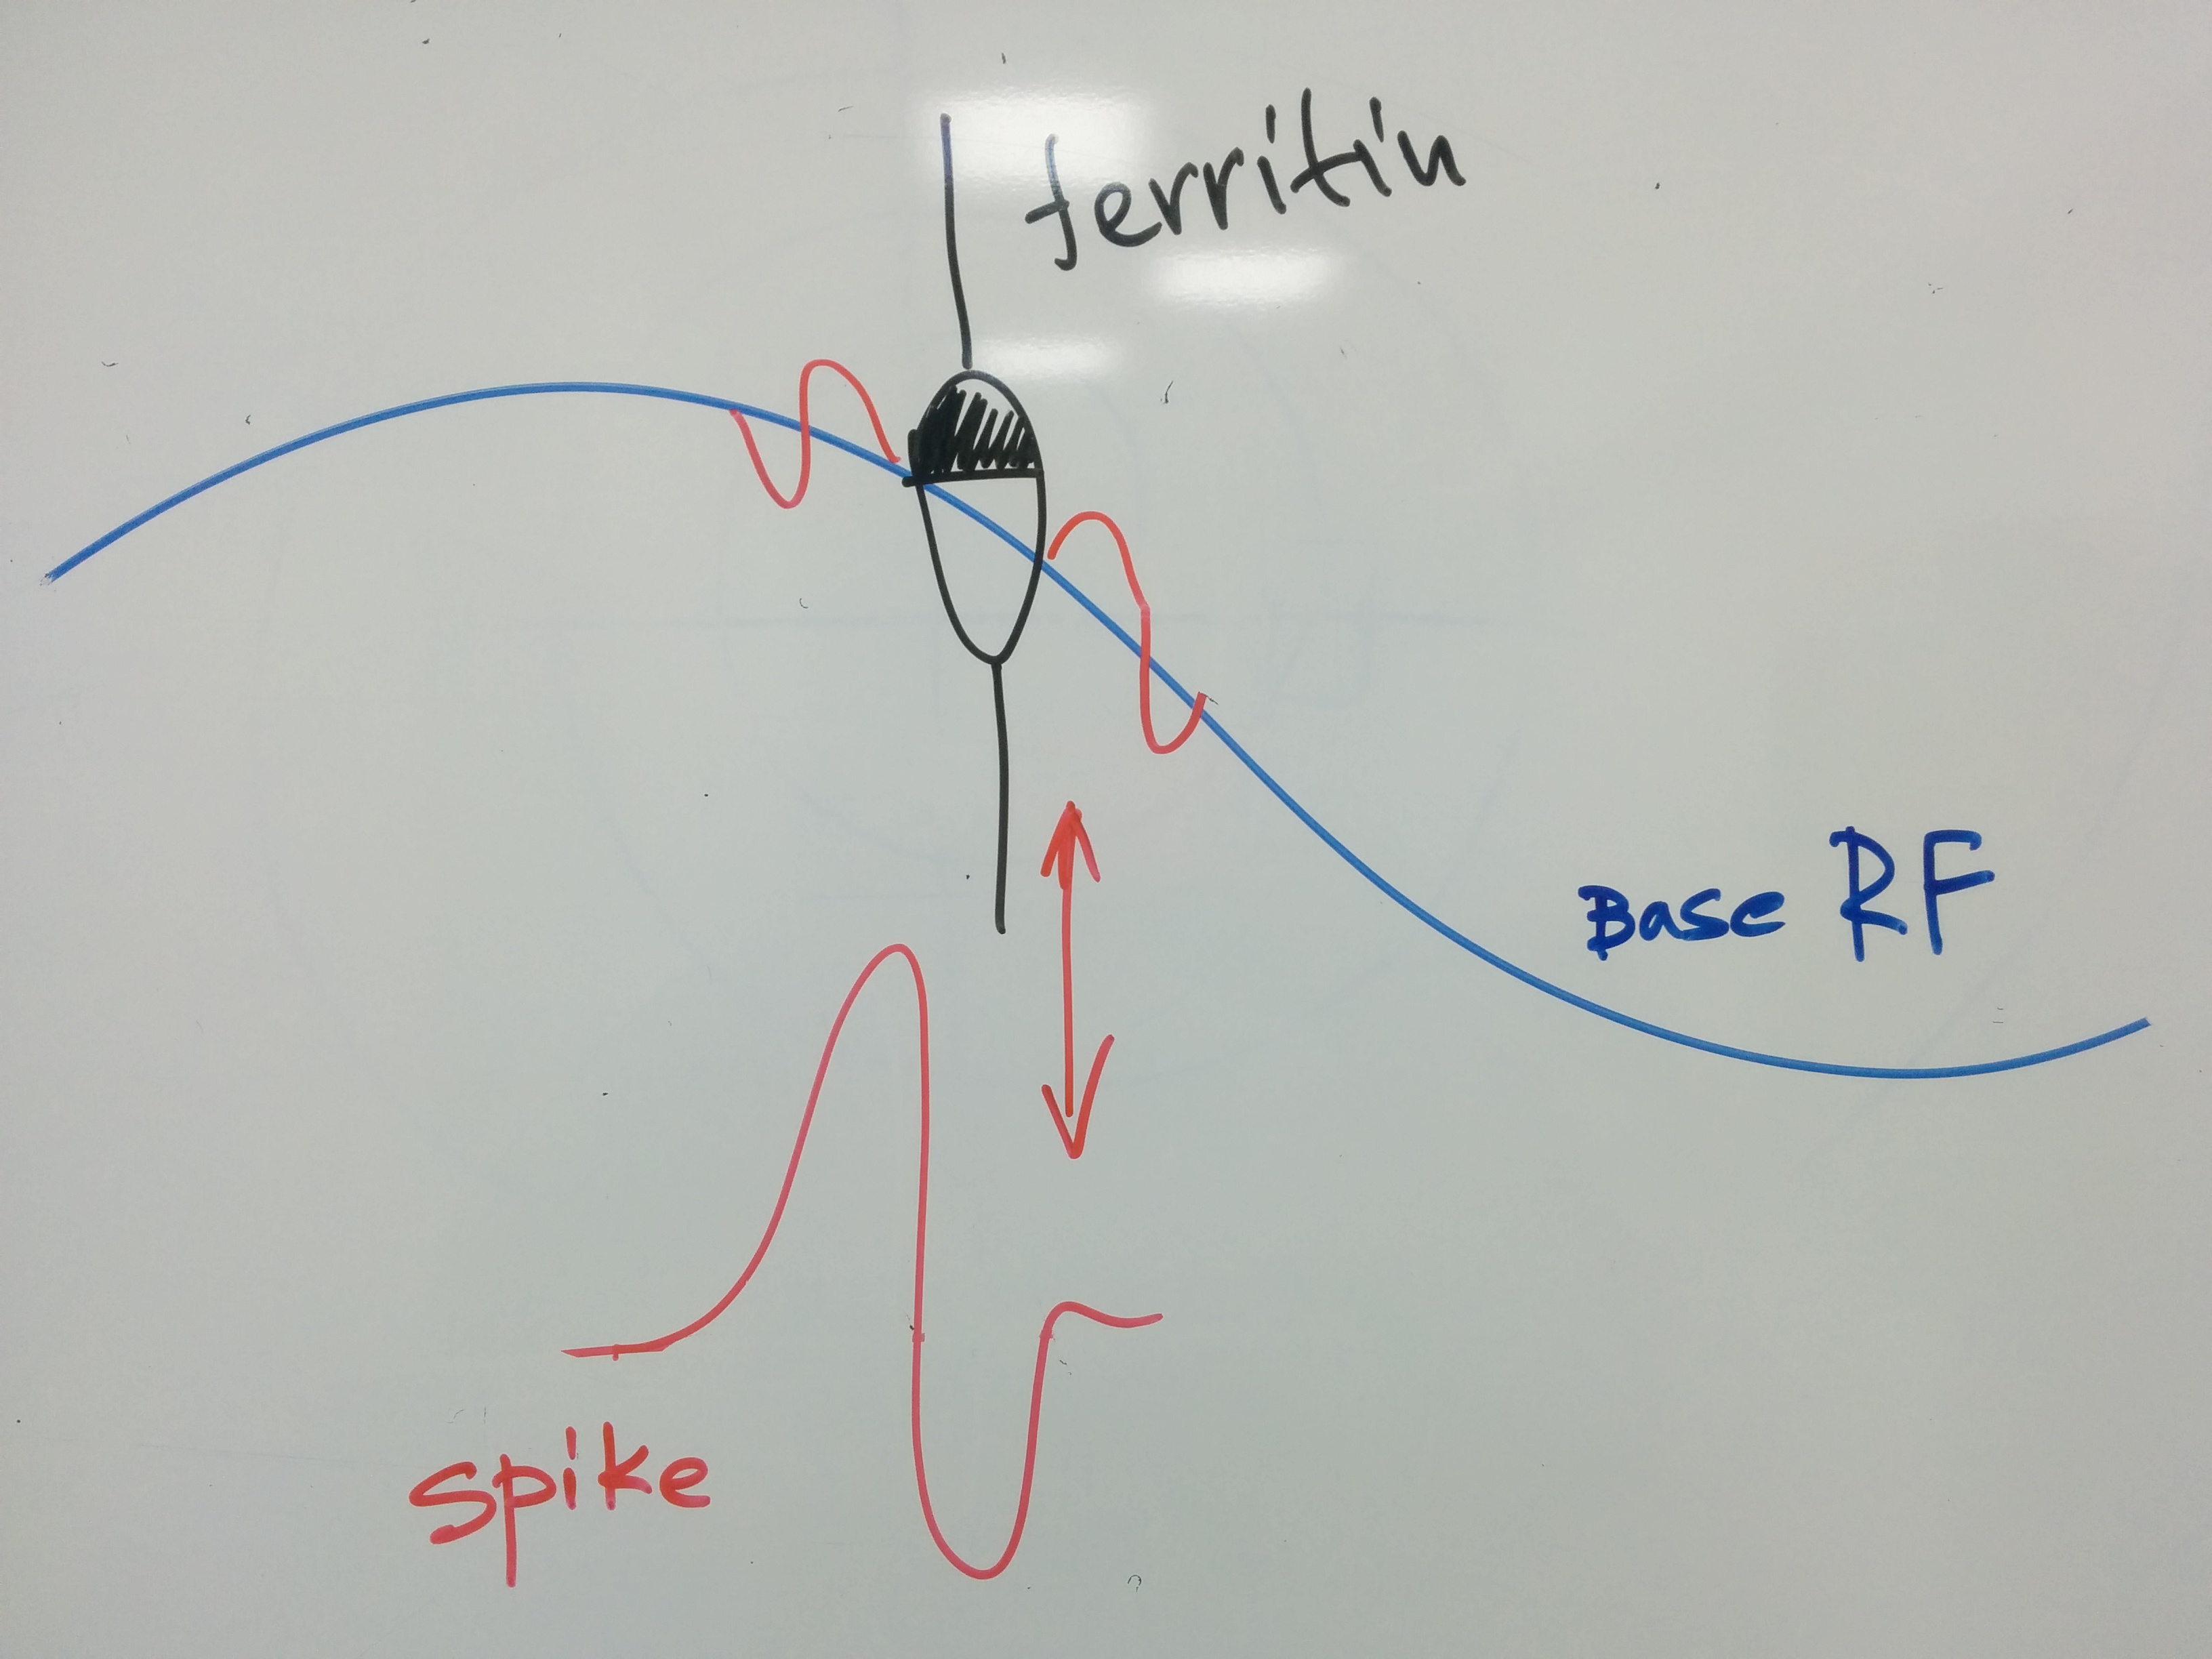 ferritin
Base RF
spike